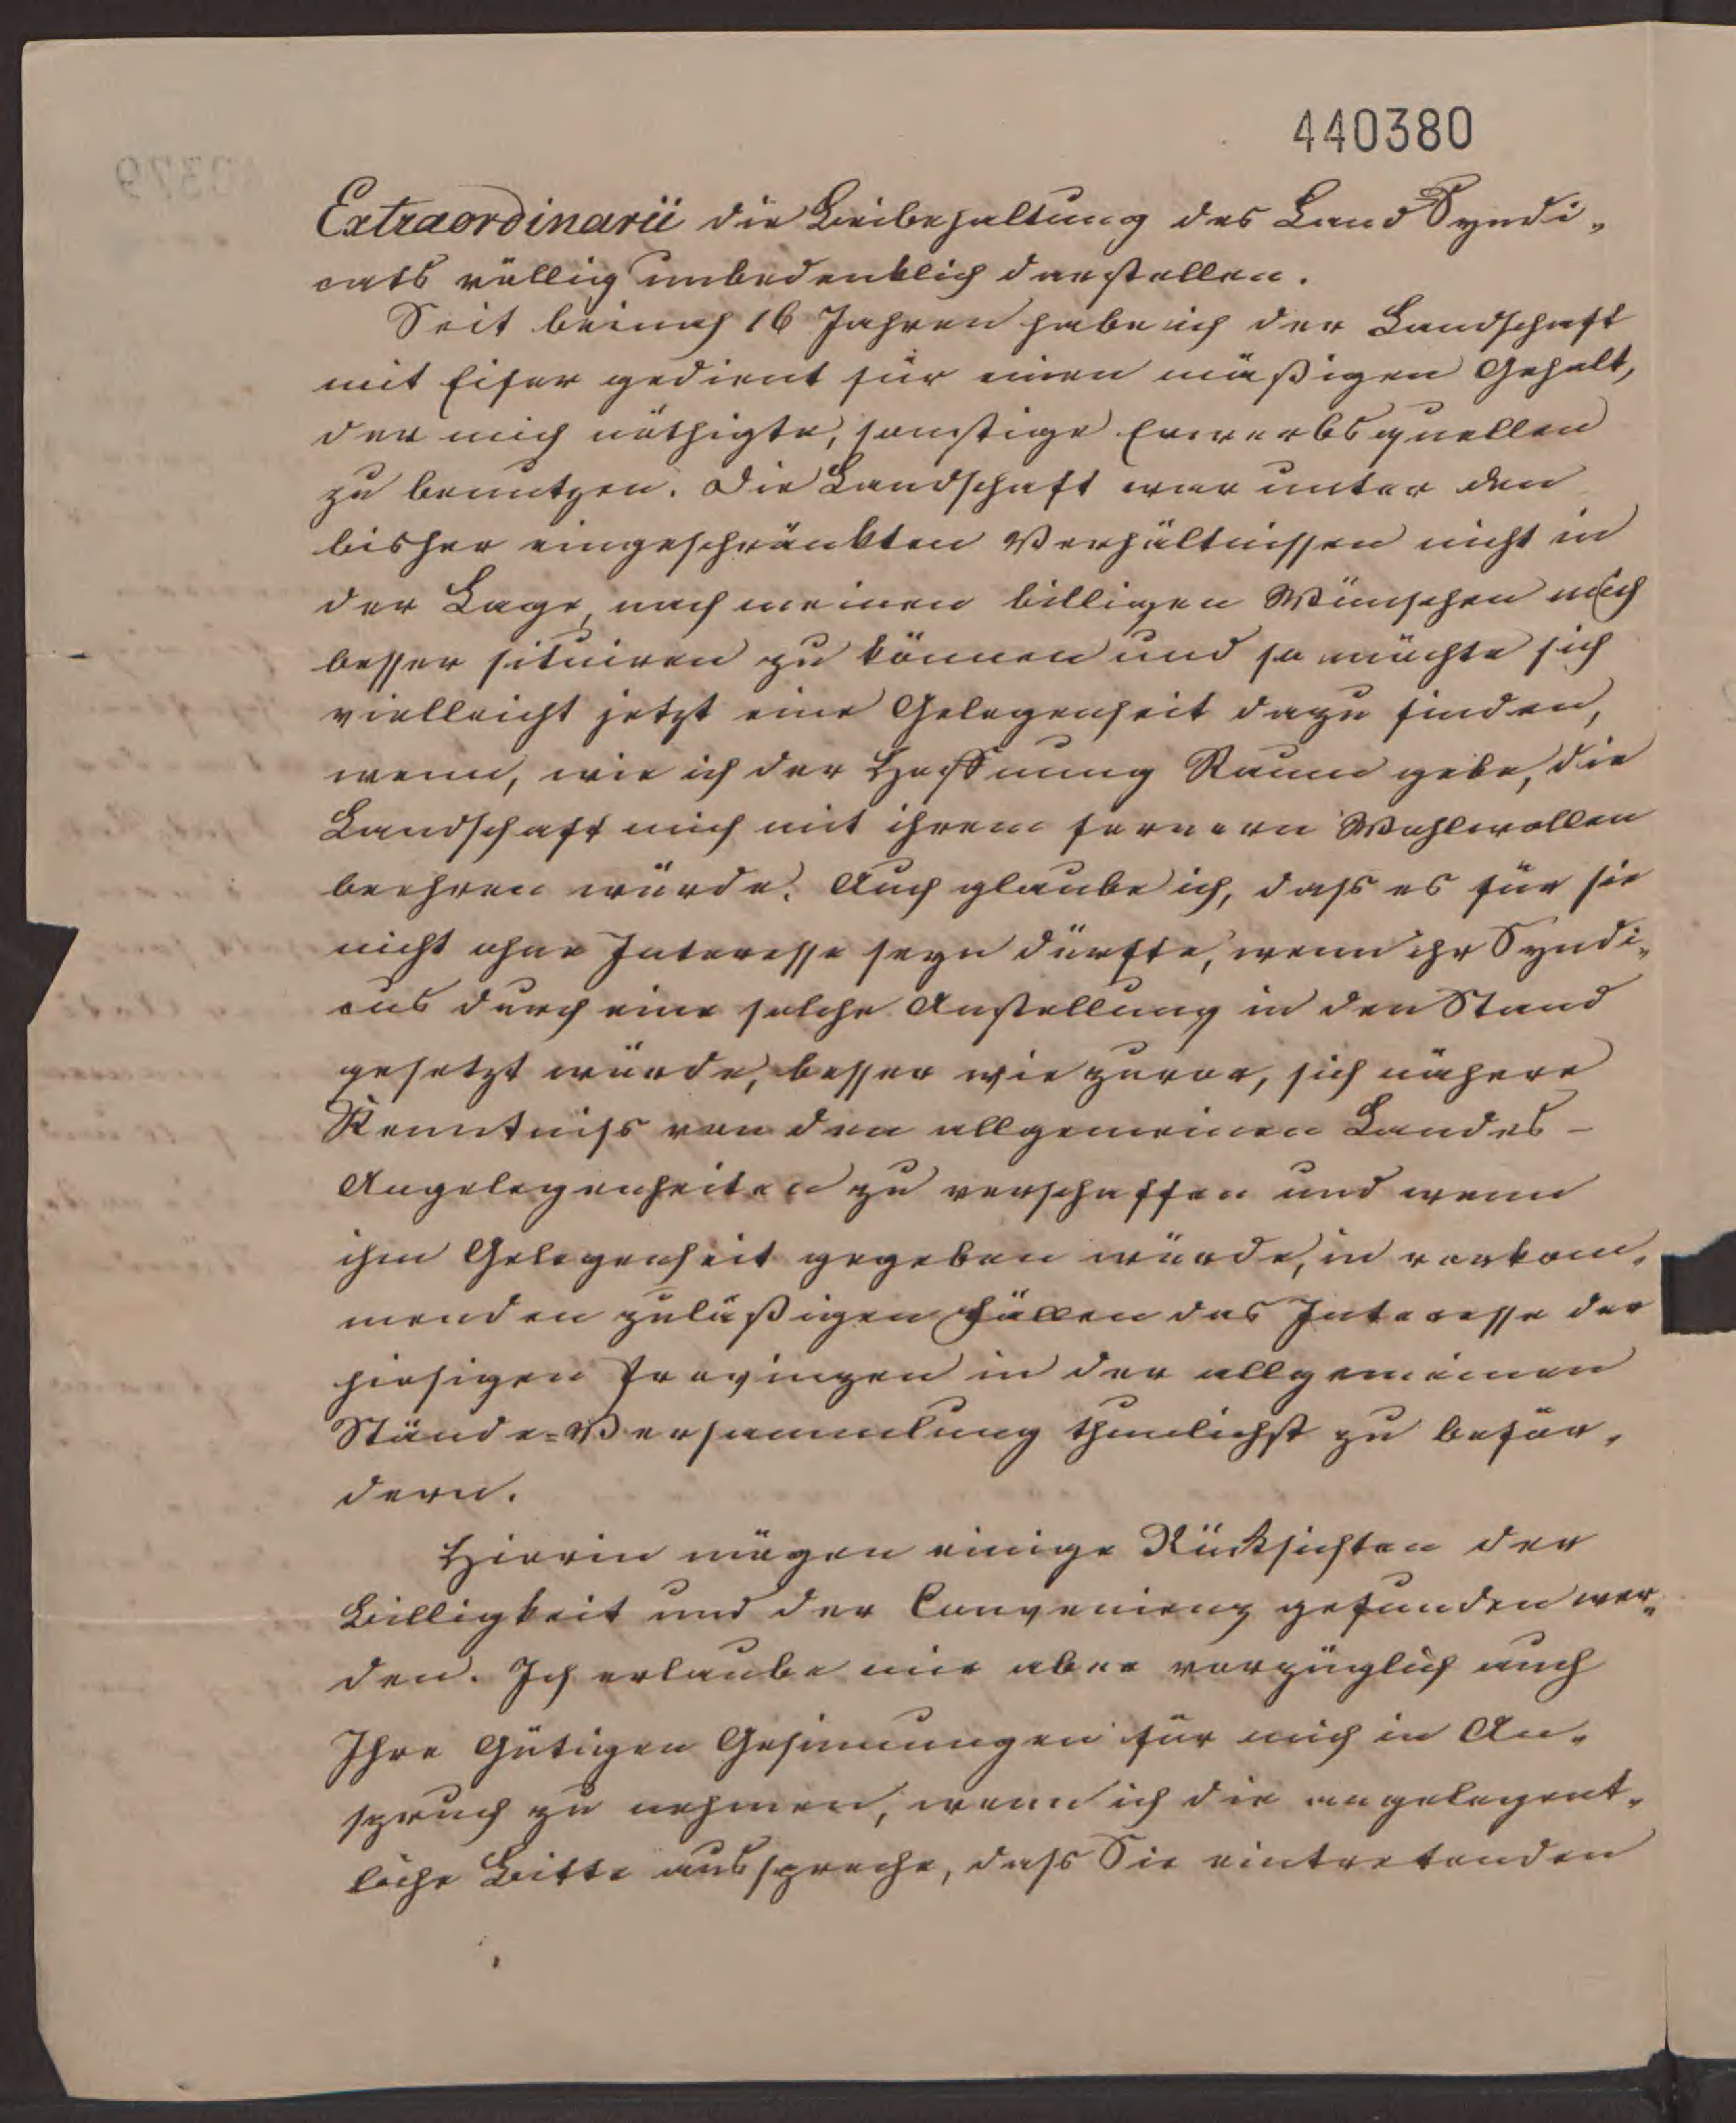 440380
Extraordinarii die Beibehaltung des Land Syndi„
cats völlig unbedenklich darstellen.
Seit beinah 16 Jahren habe ich der Landschaft
mit Eifer gedient für einen mäßigen Gehalt,
der mich nöthigte, sonstige Erwerbsquellen
zu benutzen. Die Landschaft war unter den
bisher eingeschränkten Verhältnissen nicht in
der Lage, nach meinen billigen Wünschen mich
besser situiren zu können und so möchte sich
vielleicht jetzt eine Gelegenheit dazu finden,
wenn, wie ich der Hoffnung Raum gebe, die
Landschaft mich mit ihrem fernern Wohlwollen
beehren würde. Auch glaube ich, dass es für sie
nicht ohne Interesse seyn dürfte, wenn ihr Syndi„
cus durch eine solche Anstellung in den Stand
gesetzt würde, besser wie zuvor, sich nähere
Kenntniss von den allgemeinen Landes-
Angelegenheiten zu verschaffen und wenn
ihm Gelegenheit gegeben würde, in vorkom„
menden zuläßigen Fällen das Interesse der
hiesigen Provinzen in der allgemeinen
Stände=Versammlung thunlichst zu beför„
dern.
Hierin mögen einige Rücksichten der
Billigkeit und der Convenienz gefunden wer„
den. Ich erlaube mir aber vorzüglich auch
Ihre Gütigen Gesinnungen für mich in An„
spruch zu nehmen, wenn ich die angelegent„
liche Bitte ausspreche, dass Sie eintretenden